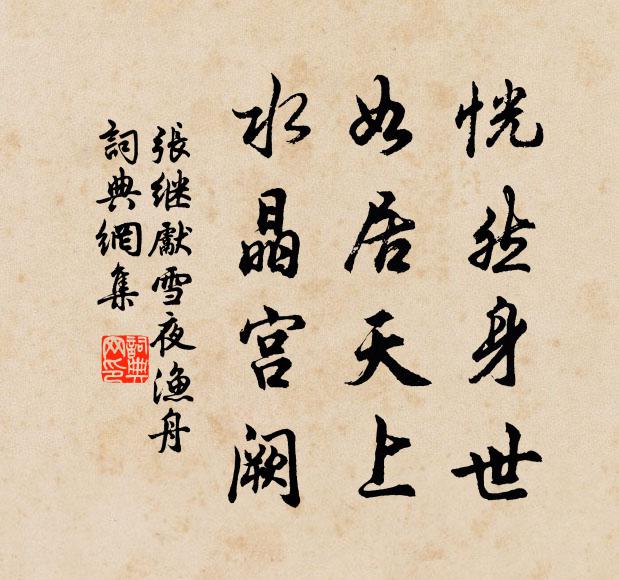 恍然身世
如居天上
水晶宫阙
張继獻雪夜渔舟
詞典網集
詞典网印